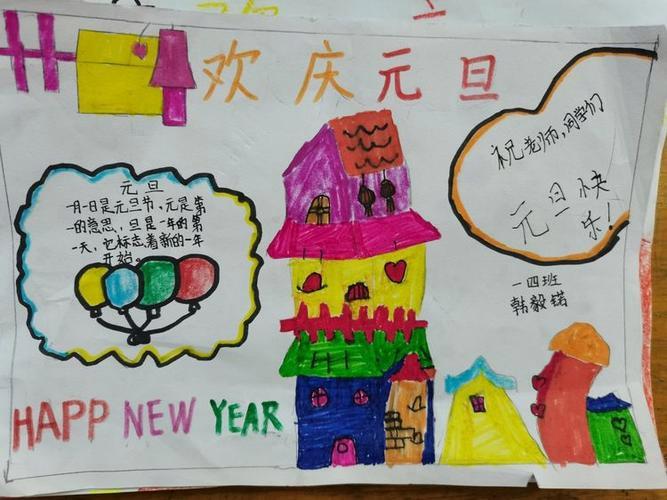 欢庆元旦
元旦
一月一日是元旦节,元是第
一的意思,旦是一年的第
一天,它标志着新的一年
开始。
祝老师,同学们
元旦快
乐!
一四班
韩毅锘
HAPP NEW YEAR